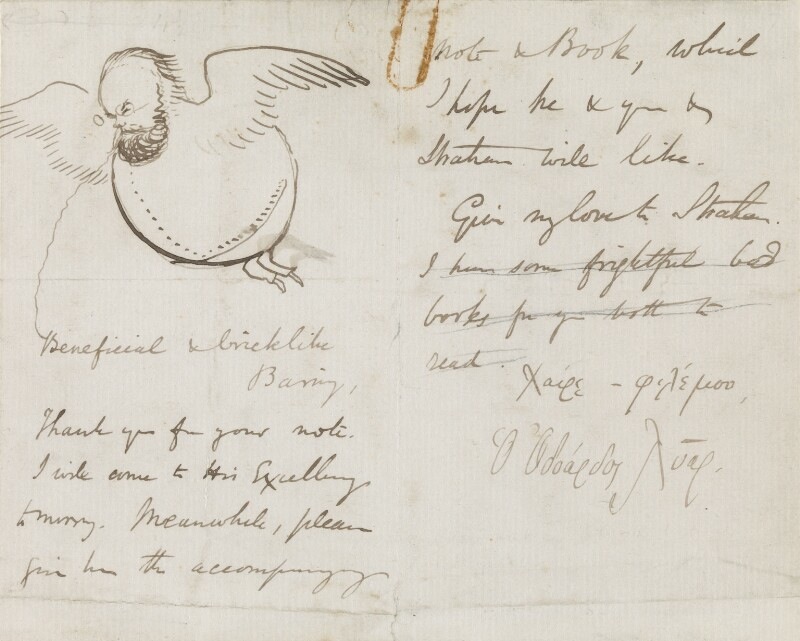 Beneficial & bricklike
Baring,
Thank you for your note.
I will come to His Excellency
tomorrow. Meanwhile, please
give him the accompanying
note & Book, which
I hope he & you &
Strahan will like.
Give my love to Strahan.
I have some frightful bad
books for you both to
read.
Χαίρε – φιλέμου,
Ὁ Ὀδοάρδος Λῦαρ.